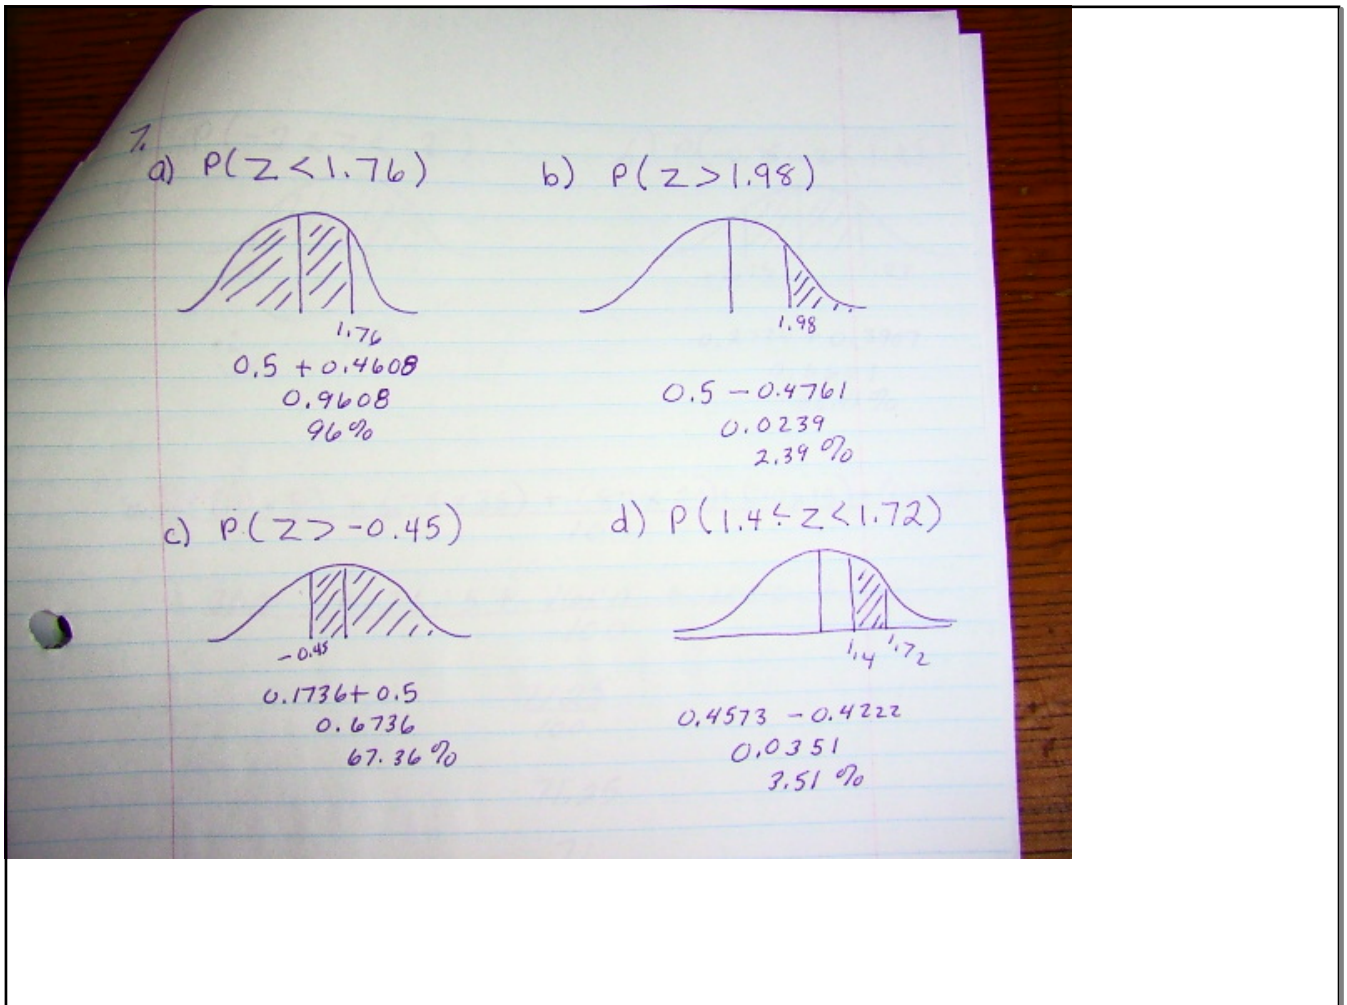 7.
a) P(Z < 1.76)
1.76
0.5 + 0.4608
0.9608
96%
b) P(Z > 1.98)
1.98
0.5 - 0.4761
0.0239
2.39%
c) P(Z > -0.45)
-0.45
0.1736 + 0.5
0.6736
67.36%
d) P(1.4 < Z < 1.72)
1.4 1.72
0.4573 - 0.4222
0.0351
3.51%